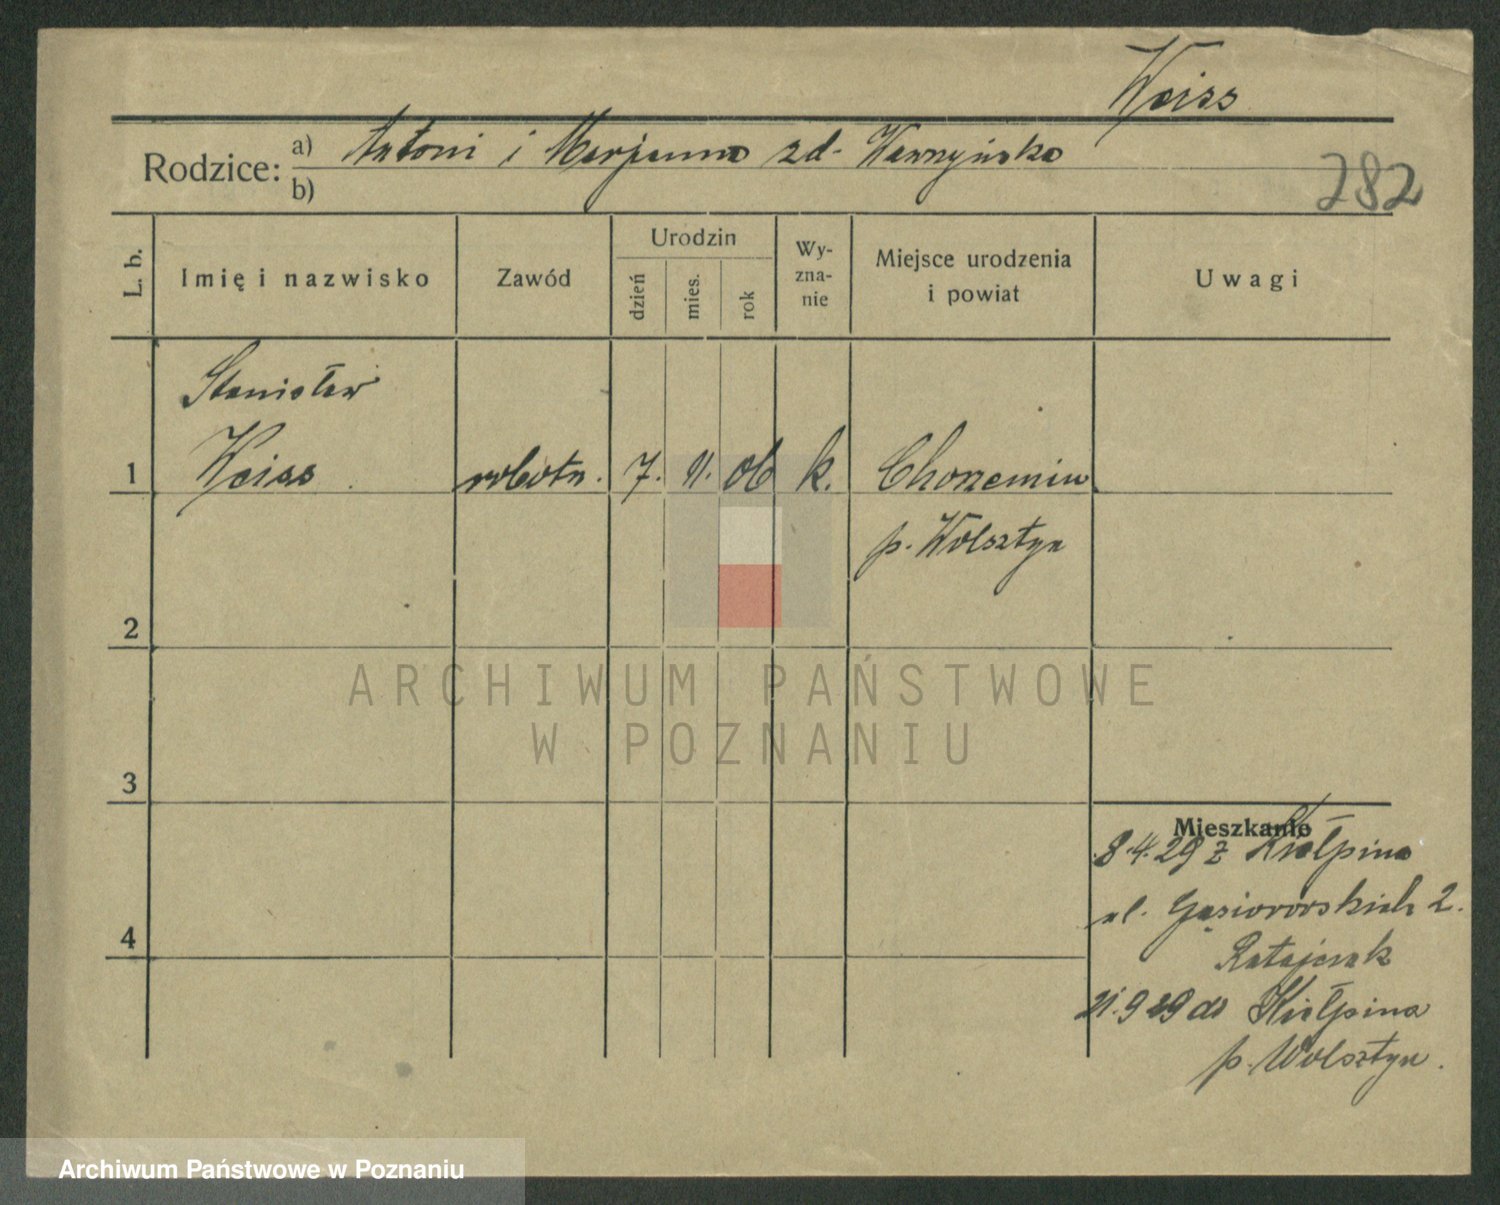 Weiss
Rodzice: a) Antoni i Marjanna zd. Wawrzyńska
b)
282
L. b. Imię i nazwisko Zawód Urodzin dzień mies. rok Wy-zna-nie Miejsce urodzenia i powiat Uwagi
Stanisław
1 Weiss robotn. 7. 11. 06 k. Chorzemin
p. Wolsztyn
2
ARCHIWUM PAŃSTWOWE
W POZNANIU
3
Mieszkanie
8.4.29 z Kiełpina
4 ul. Gąsiorowskich 2.
Ratajczak
21.9 29 do Kiełpina
p. Wolsztyn.
Archiwum Państwowe w Poznaniu